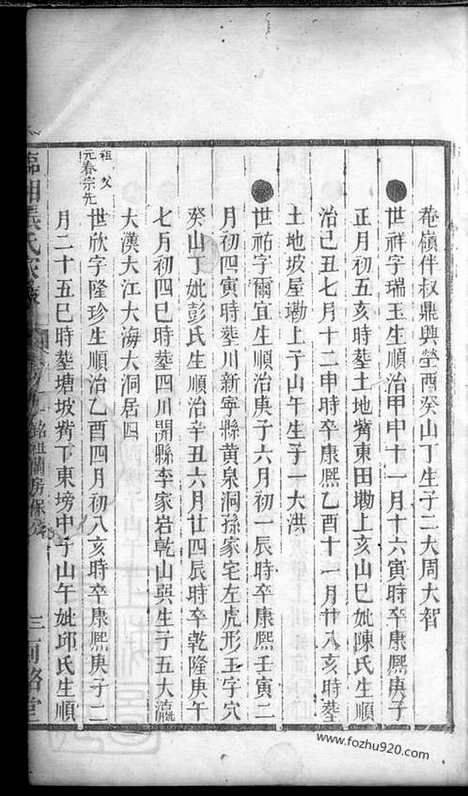 菴嶺伴叔鼎興塋酉癸山丁生子二大周大智
世祥字瑞玉生順治甲申十一月十六寅時卒康熙庚子
正月初五亥時塟土地觜東田墈上亥山巳妣陳氏生順
治己丑七月十二申時卒康熙乙酉十一月廿八亥時塟
土地坡屋墈上子山午生子一大洪
世祐字爾宜生順治庚子六月初一辰時卒康熙壬寅二
月初四寅時塟川新寧縣黄泉洞孫家宅左虎形玉字穴
癸山丁妣彭氏生順治辛丑六月廿四辰時卒乾隆庚午
七月初四巳時塟四川開縣李家岩乾山巽生子五大瀛
大漢大江大海大洞居四
祖父
元春宗先
世欣字隆珍生順治乙酉四月初八亥時卒康熙庚子二
月二十五巳時塟塘坡觜丁東塝中子山午妣邱氏生順
臨湘張氏家
銘祖蘭房保
www.fozhu920.com